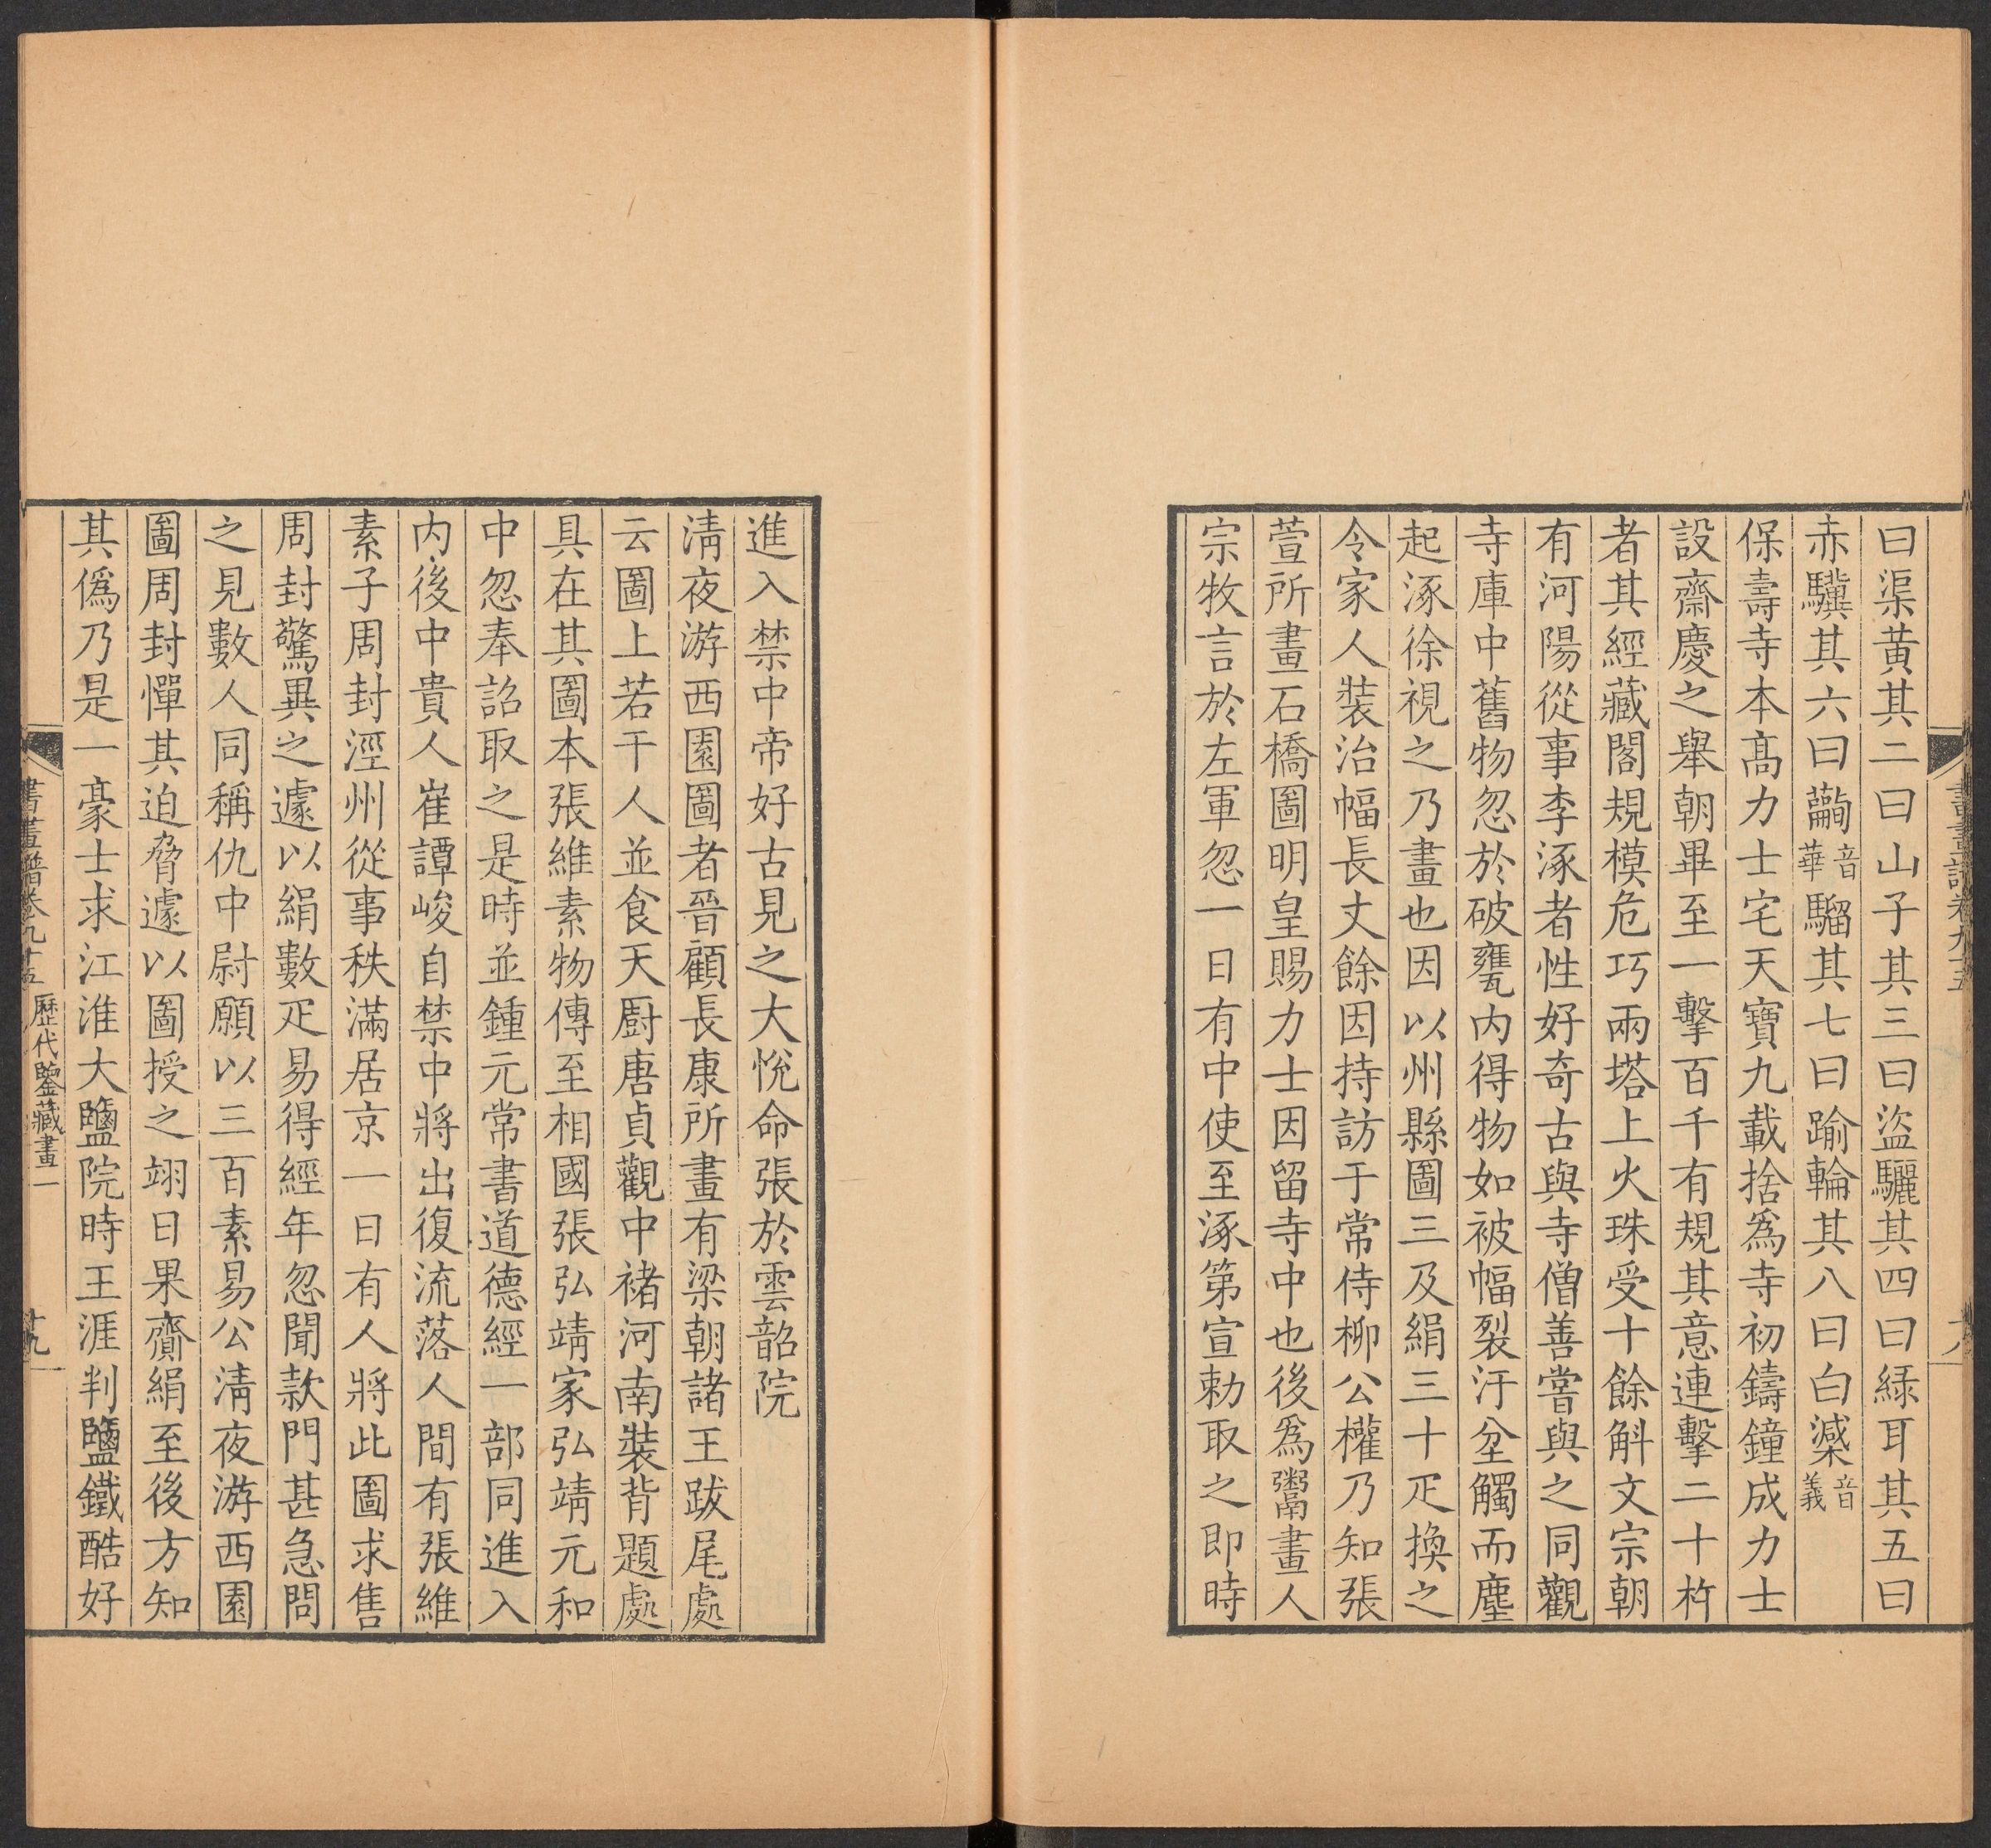 曰渠黃其二曰山子其三曰盜驪其四曰緑耳其五曰
赤驥其六曰𩧉音華騮其七曰踰輪其八曰白㵗音義
保壽寺本髙力士宅天寶九載捨爲寺初鑄鐘成力士
設齋慶之舉朝畢至一擊百千有規其意連擊二十杵
者其經藏閣規模危巧兩塔上火珠受十餘斛文宗朝
有河陽從事李涿者性好奇古與寺僧善嘗與之同觀
寺庫中舊物忽於破甕内得物如被幅裂汙坌觸而塵
起涿徐視之乃畫也因以州縣圖三及絹三十疋換之
令家人裝治幅長丈餘因持訪于常侍柳公權乃知張
萱所畫石橋圖明皇賜力士因留寺中也後爲鬻畫人
宗牧言於左軍忽一日有中使至涿第宣勅取之即時
書畫譜卷九十五
十八
進入禁中帝好古見之大悅命張於雲韶院
淸夜游西園圖者晉顧長康所畫有梁朝諸王跋尾處
云圖上若干人並食天厨唐貞觀中褚河南裝背題處
具在其圖本張維素物傳至相國張弘靖家弘靖元和
中忽奉詔取之是時並鍾元常書道德經一部同進入
内後中貴人崔譚峻自禁中將出復流落人間有張維
素子周封涇州從事秩滿居京一日有人將此圖求售
周封驚異之遽以絹數疋易得經年忽聞款門甚急問
之見數人同稱仇中尉願以三百素易公淸夜游西園
圖周封憚其迫脅遽以圖授之翊日果齎絹至後方知
其僞乃是一豪士求江淮大鹽院時王涯判鹽鐵酷好
書畫譜卷九十五
歷代鑒藏畫一
十九